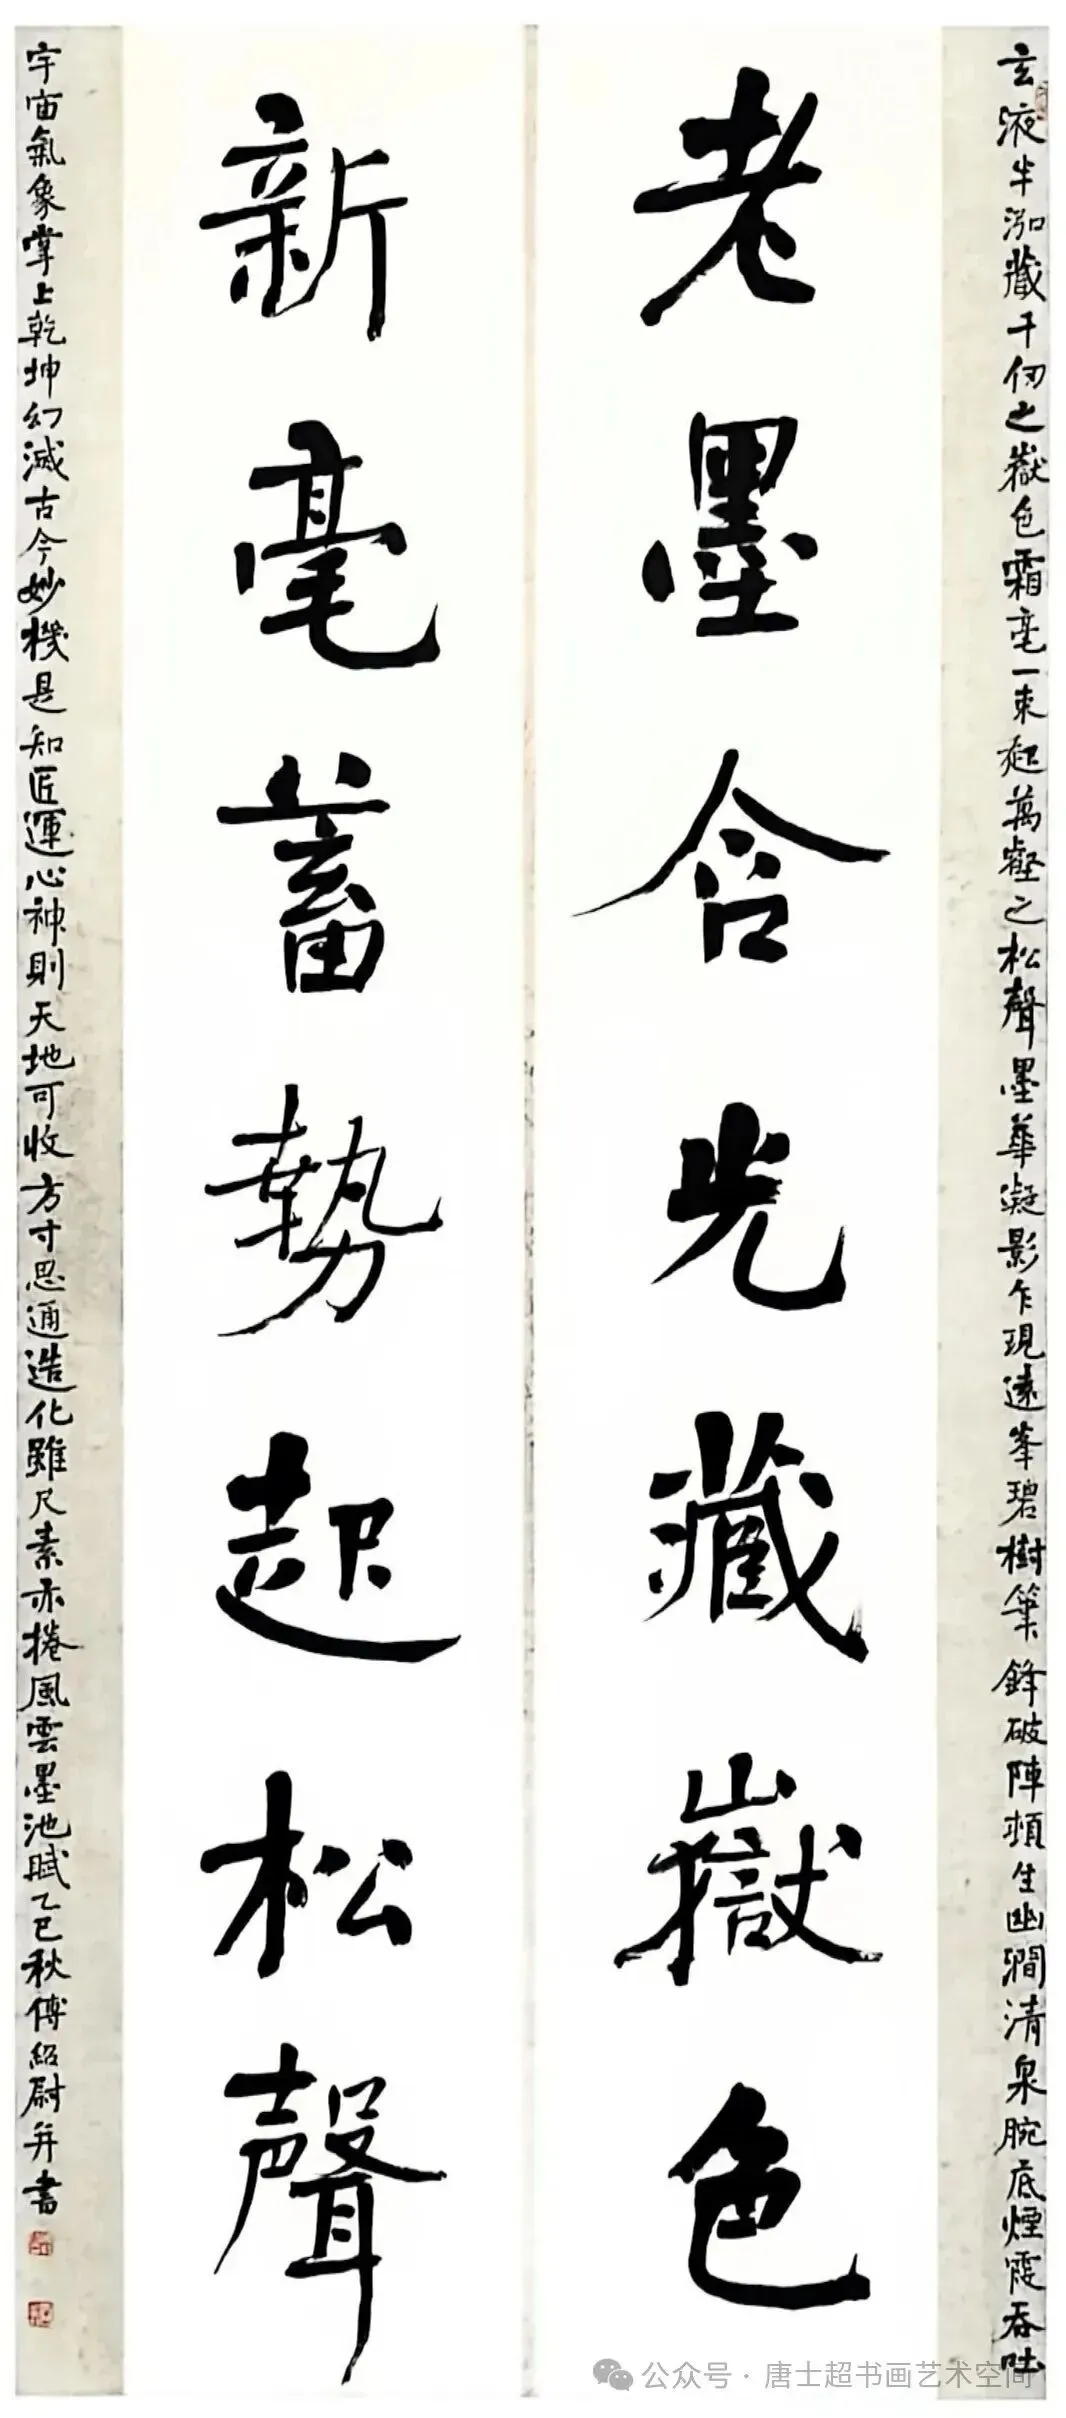 玄液半泓藏千仞之嶽色霜毫一束起萬壑之松聲墨華凝影乍現遠峯碧樹筆鋒破陣頓生幽澗清泉腕底煙霞吞吐
老墨含光藏嶽色
新毫蓄勢起松聲
宇宙氣象掌上乾坤幻滅古今妙機是知匠運心神則天地可收方寸思通造化雖尺素亦捲風雲墨池賦乙巳秋傅紹尉并書
公众号·唐士超书画艺术空间